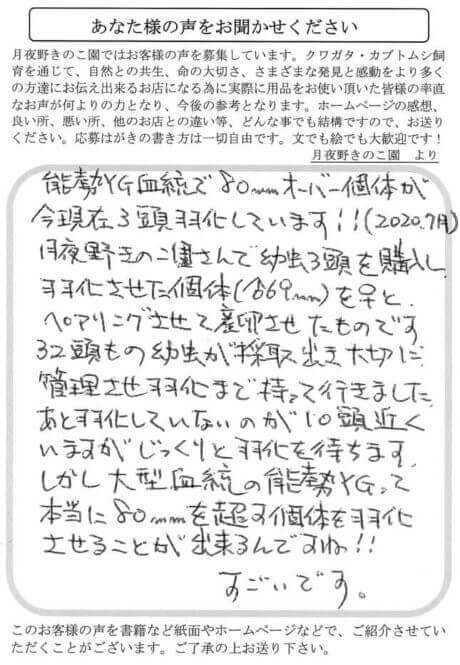 あなた様の声をお聞かせください
月夜野きのこ園ではお客様の声を募集しています。クワガタ・カブトムシ飼
育を通じて、自然との共生、命の大切さ、さまざまな発見と感動をより多く
の方達にお伝え出来るお店になる為に実際に用品をお使い頂いた皆様の率直
なお声が何よりの力となり、今後の参考となります。ホームページの感想、
良い所、悪い所、他のお店との違い等、どんな事でも結構ですので、お送り
ください。応募はがきの書き方は一切自由です。文でも絵でも大歓迎です！
月夜野きのこ園　より
能勢YG血統で80mmオーバー個体が
今現在3頭羽化しています!!(2020.7月)
月夜野きのこ園さんで幼虫3頭を購入し
羽化させた個体(♂69mm)を♀と
ペアリングさせて産卵させたものです
32頭もの幼虫が採取出き大切に
管理させ羽化まで持って行きました。
あと羽化していないのが10頭近く
いますがじっくりと羽化を待ちます。
しかし大型血統の能勢YGって
本当に80mmを超す個体を羽化
させることが出来るんですね!!
すごいです。
このお客様の声を書籍など紙面やホームページなどで、ご紹介させていた
だくことがございます。ご了承の上お送り下さい。